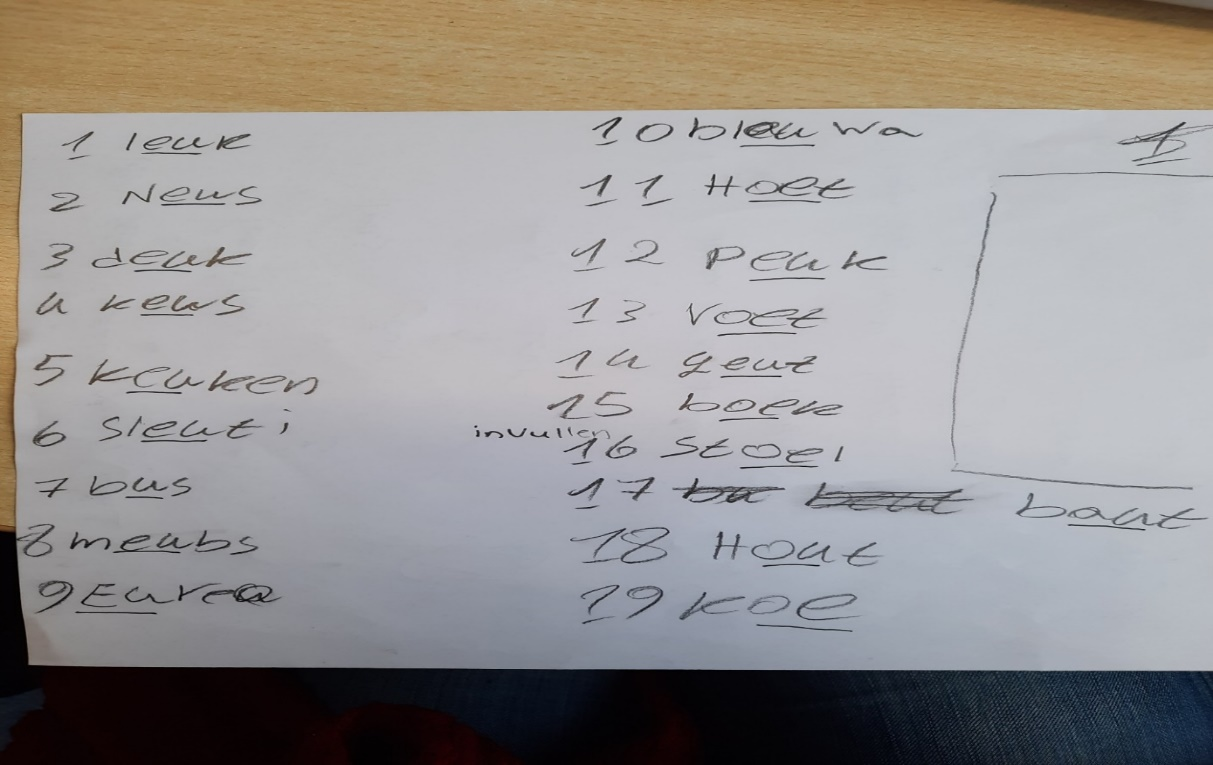 1 leuk
2 Neus
3 deuk
4 keus
5 keuken
6 Sleuti
7 bus
8 meubs
9 Eurea
10 bleuwa
11 Hoet
12 Peuk
13 Voet
14 geut
15 boek
invullen
16 Stoel
17 baut
18 Hout
19 koe
1